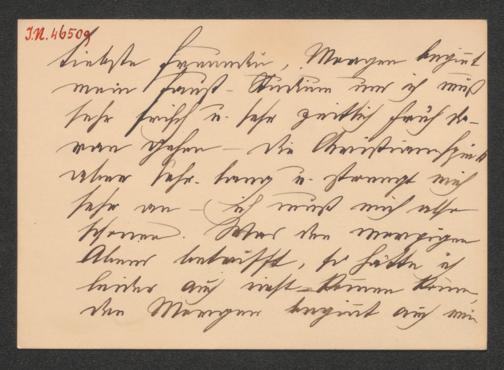 I.N. 46509
Liebste Freundin, Morgen beginnt
mein Faust-Studium und ich muß
sehr frisch u. sehr zeitlich früh da-
ran gehen – die
aber sehr lang u. strengt mich
sehr an – ich muß mich also
schonen. Was den morgigen
Abend betrifft, so hätte ich
leider auch nicht kommen können,
den Morgen beginnt auch mein